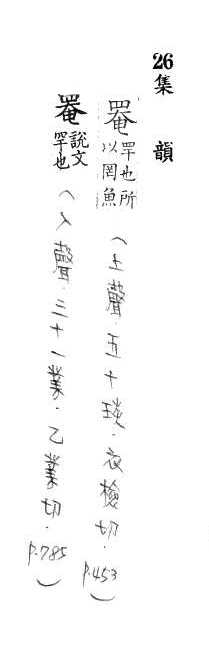 26集 韻
罨罕也所以罔魚(上聲.五十琰.衣檢切.P.453)
罨說文罕也(入聲.三十一業.乙業切.P.785)